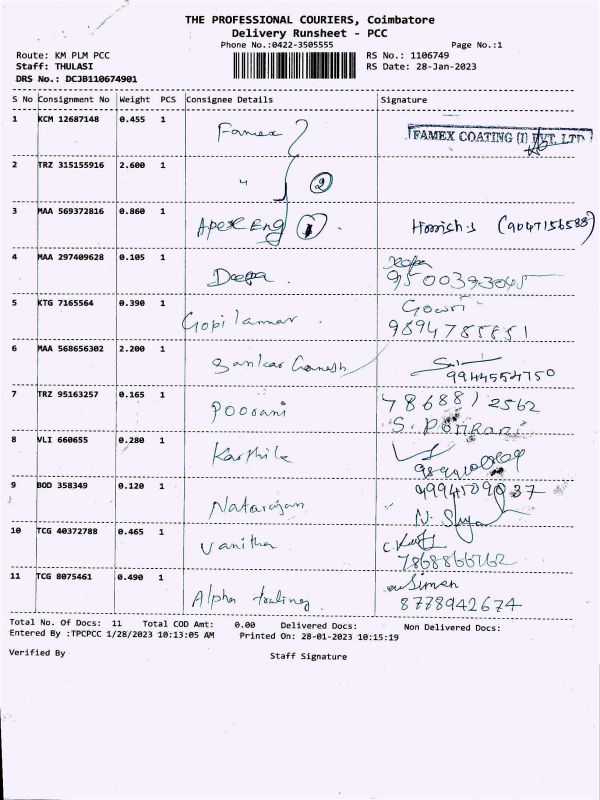 THE PROFESSIONAL COURIERS, Coimbatore
Delivery Runsheet - PCC
Phone No.:0422-3505555 Page No.:1
Route: KM PLM PCC RS No.: 1106749
Staff: THULASI RS Date: 28-Jan-2023
DRS No.: DCJB110674901
S No Consignment No Weight PCS Consignee Details Signature
1 KCM 12687148 0.455 1 Famex FAMEX COATING (I) PVT. LTD
2 TRZ 315155916 2.600 1 " 2
3 MAA 569372816 0.860 1 Apex Eng 1 Harish.s (9047156588)
4 MAA 297409628 0.105 1 Deepa
9500393045
5 KTG 7165564 0.390 1 Gopi Gowri
6 MAA 568656302 2.200 1 Sankar Ganesh
9944554750
7 TRZ 95163257 0.165 1 Poorani 7868812562
S. Poorani
8 VLI 660655 0.280 1 Karthik
9 BOD 358349 0.120 1 Natarajan
10 TCG 40372788 0.465 1 Vanitha
11 TCG 8075461 0.490 1 Alpha trading
8778942674
Total No. Of Docs: 11 Total COD Amt: 0.00 Delivered Docs: Non Delivered Docs:
Entered By :TPCPCC 1/28/2023 10:13:05 AM Printed On: 28-01-2023 10:15:19
Verified By Staff Signature